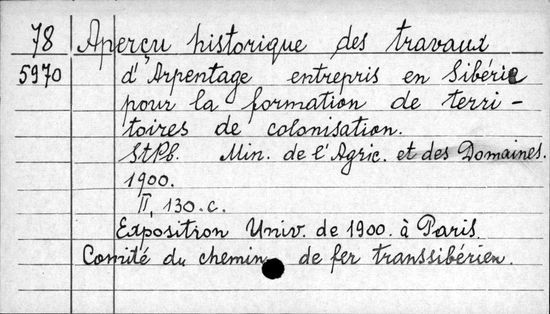 78 Aperçu historique des travaux
5970 d'Arpentage entrepris en Sibérie
pour la formation de terri-
toires de colonisation.
StPb. Min. de l'Agric. et des Domaines.
1900.
II, 130.c.
Expositron Univ. de 1900. à Paris.
Comité du chemin de fer transsibérien.